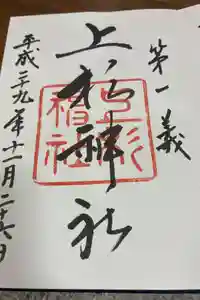 第一義
上杉神社
上杉
神社
平成二十九年十一月二十六日